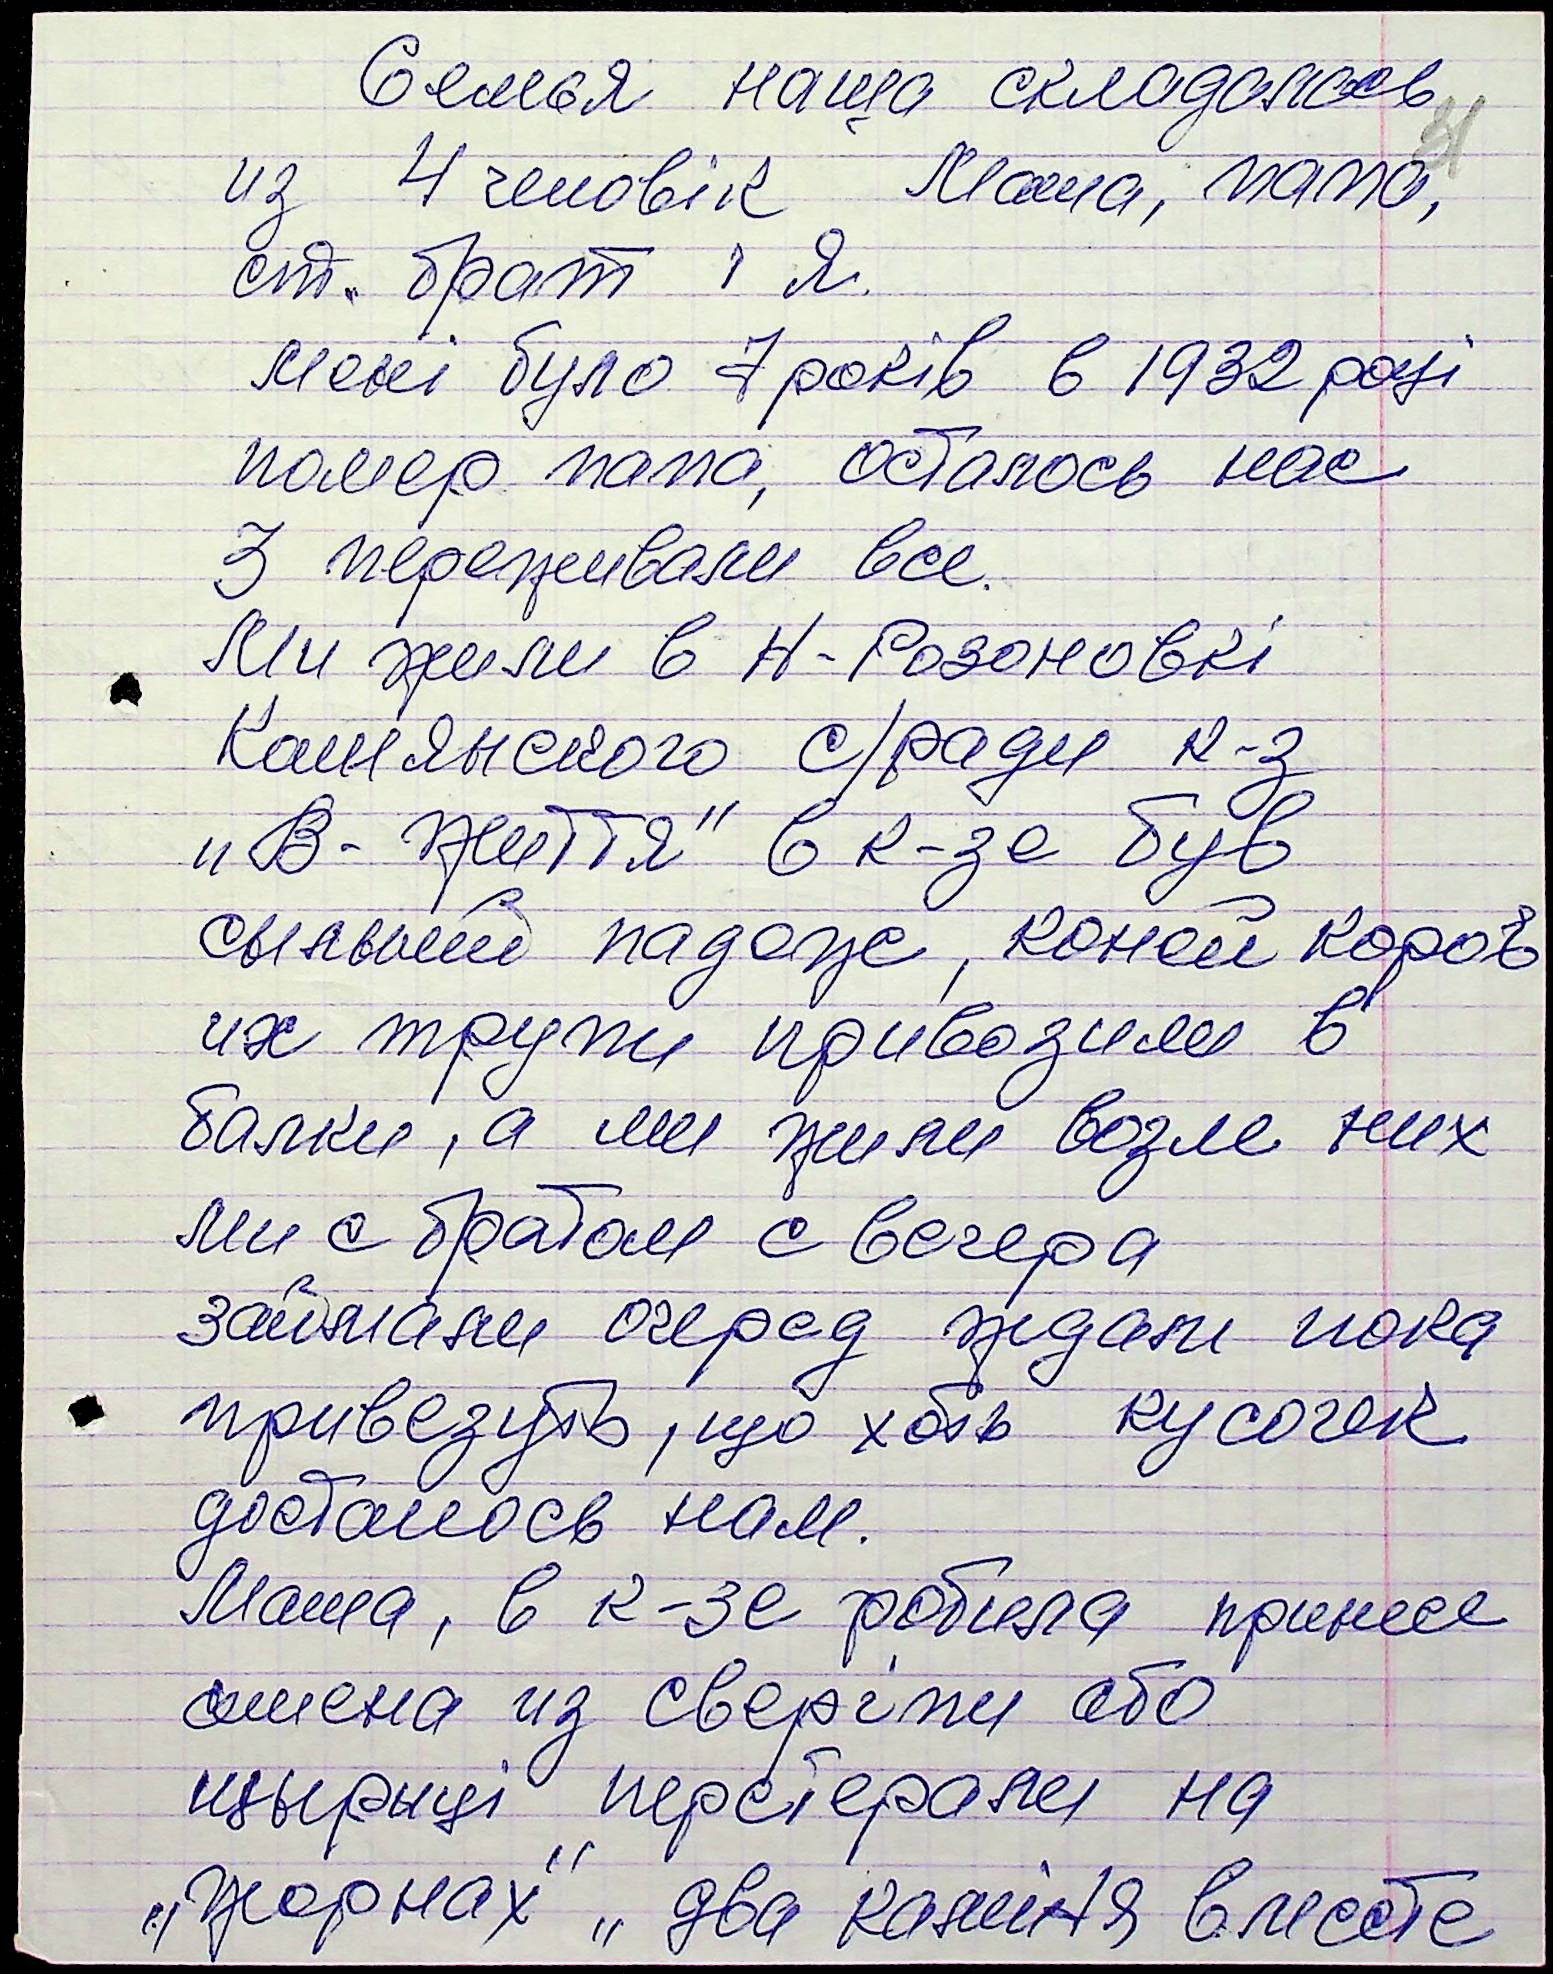 Семья наша складолась
31
из 4 человік Мама, папа,
ст. брат і я.
мені було 7 років в 1932 році
помер папа, осталось нас
3 переживали все.
Ми жили в Н-Розоновкі
Камянского с/ради к-з
„В-життя" в к-зе був
сыльный падеже, коней коров
их трупи привозили в
балки, а ми жили возле них
ми с братом с вечера
займали очеред ждали пока
привезуть, що хоть кусочек
досталось нам.
Мама, в к-зе робила принесе
симена из сверіпи або
щырыці перетерали на
„жорнах" „два каміння вместе